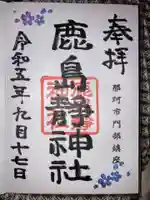 奉拝
那珂市門部鎮座
鹿島静神社
令和五年九月十七日